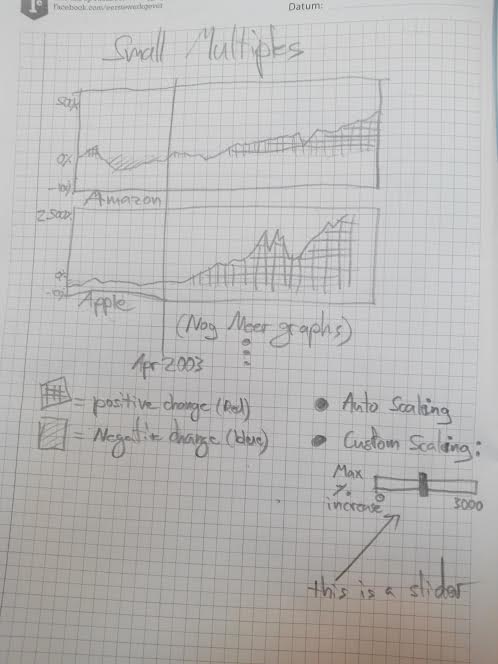 facebook.com/eersewerkgever
Datum:
Small Multiples
500%
0%
-100%
Amazon
2500%
0%
-100%
Apple
(Nog Meer graphs)
Apr 2003
= positive change (Red)
= Negative change (blue)
Auto Scaling
Custom Scaling:
Max
% increase
0
3000
this is a slider